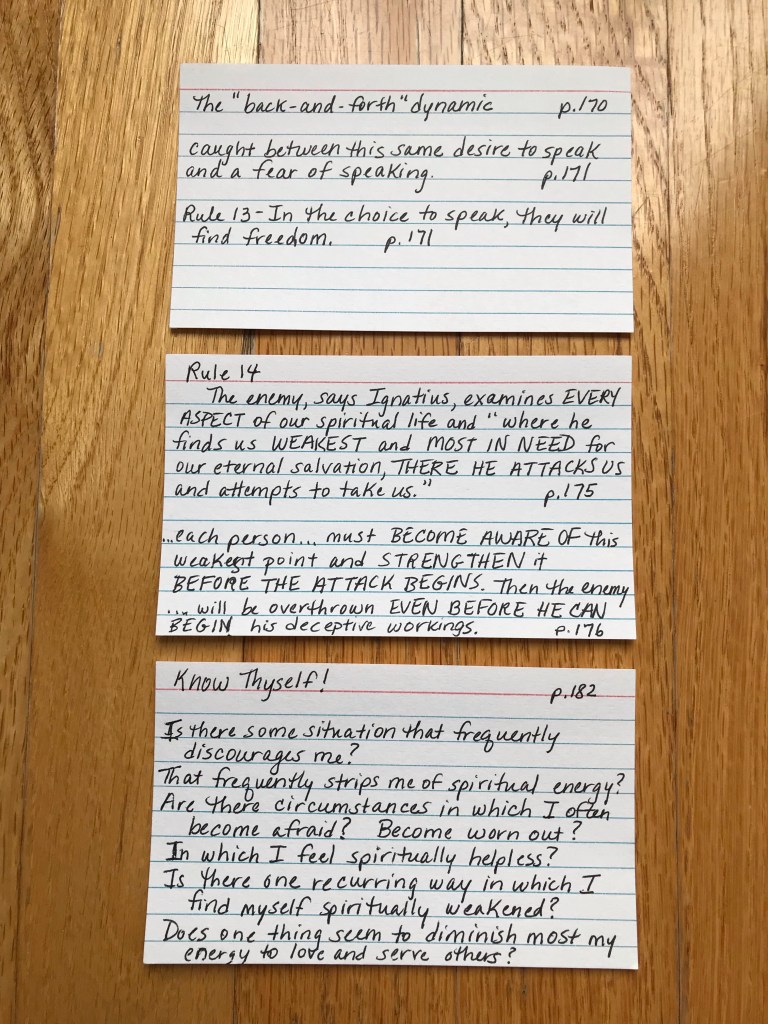 The "back-and-forth" dynamic p.170
caught between this same desire to speak
and a fear of speaking. p.171
Rule 13 - In the choice to speak, they will
find freedom. p.171
Rule 14
The enemy, says Ignatius, examines EVERY
ASPECT of our spiritual life and "where he
finds us WEAKEST and MOST IN NEED for
our eternal salvation, THERE HE ATTACKS US
and attempts to take us." p.175
...each person... must BECOME AWARE OF this
weakest point and STRENGTHEN it
BEFORE THE ATTACK BEGINS. Then the enemy
... will be overthrown EVEN BEFORE HE CAN
BEGIN his deceptive workings. p.176
Know Thyself! p.182
Is there some situation that frequently
discourages me?
That frequently strips me of spiritual energy?
Are there circumstances in which I often
become afraid? Become worn out?
In which I feel spiritually helpless?
Is there one recurring way in which I
find myself spiritually weakened?
Does one thing seem to diminish most my
energy to love and serve others?